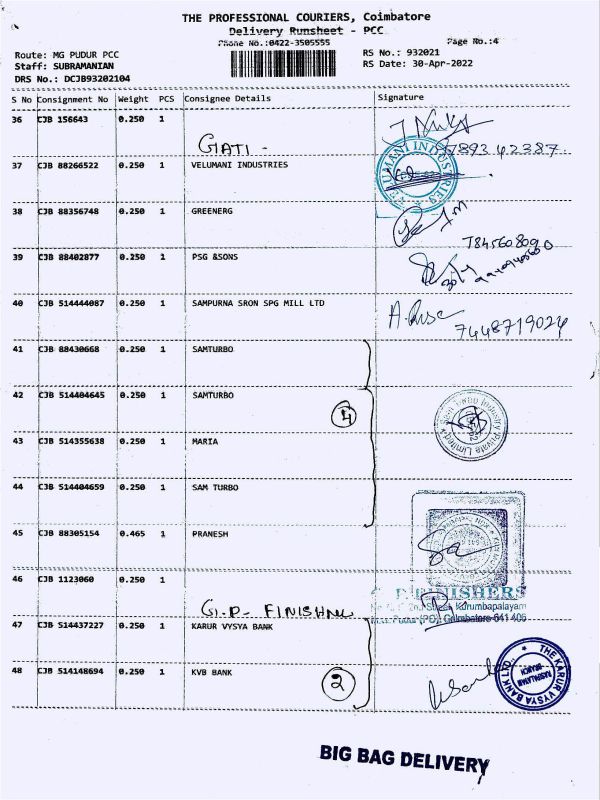 THE PROFESSIONAL COURIERS, Coimbatore
Delivery Runsheet - PCC
Phone No.:0422-3505555
Page No.:4
Route: MG PUDUR PCC
RS No.: 932021
Staff: SUBRAMANIAN
RS Date: 30-Apr-2022
DRS No.: DCJB93202104
S No Consignment No Weight PCS Consignee Details Signature
36 CJB 156643 0.250 1
GATI -
789342387
37 CJB 88266522 0.250 1 VELUMANI INDUSTRIES
VELUMANI INDUSTRIES
38 CJB 88356748 0.250 1 GREENERG
7845608090
39 CJB 88402877 0.250 1 PSG &SONS
40 CJB 514444087 0.250 1 SAMPURNA SRON SPG MILL LTD
7448719024
41 CJB 88430668 0.250 1 SAMTURBO
42 CJB 514404645 0.250 1 SAMTURBO
4
43 CJB 514355638 0.250 1 MARIA
44 CJB 514404659 0.250 1 SAM TURBO
45 CJB 88305154 0.465 1 PRANESH
46 CJB 1123060 0.250 1
G.P. FINISHERS
Street, Kurumbapalayam
(PO), Coimbatore-641 406
47 CJB 514437227 0.250 1 KARUR VYSYA BANK
48 CJB 514148694 0.250 1 KVB BANK
2
THE KARUR VYSYA BANK LTD.
BRANCH
BIG BAG DELIVERY